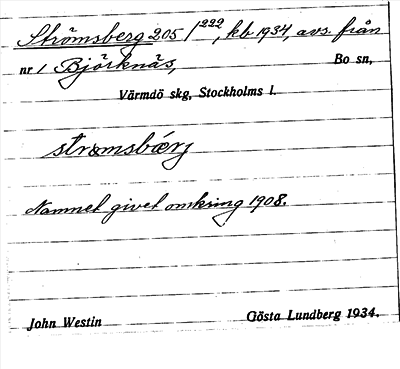 Strömsberg 205/222, kb 1934, avs. från
nr 1 Björknäs, Bo sn,
Värmdö skg, Stockholms l.
strømsbærj
Namnet givet omkring 1908.
John Westin Gösta Lundberg 1934.